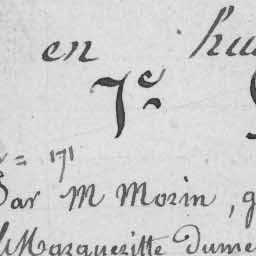 en hui
7e
= 171
Par M Morin, g
Margueritte dume